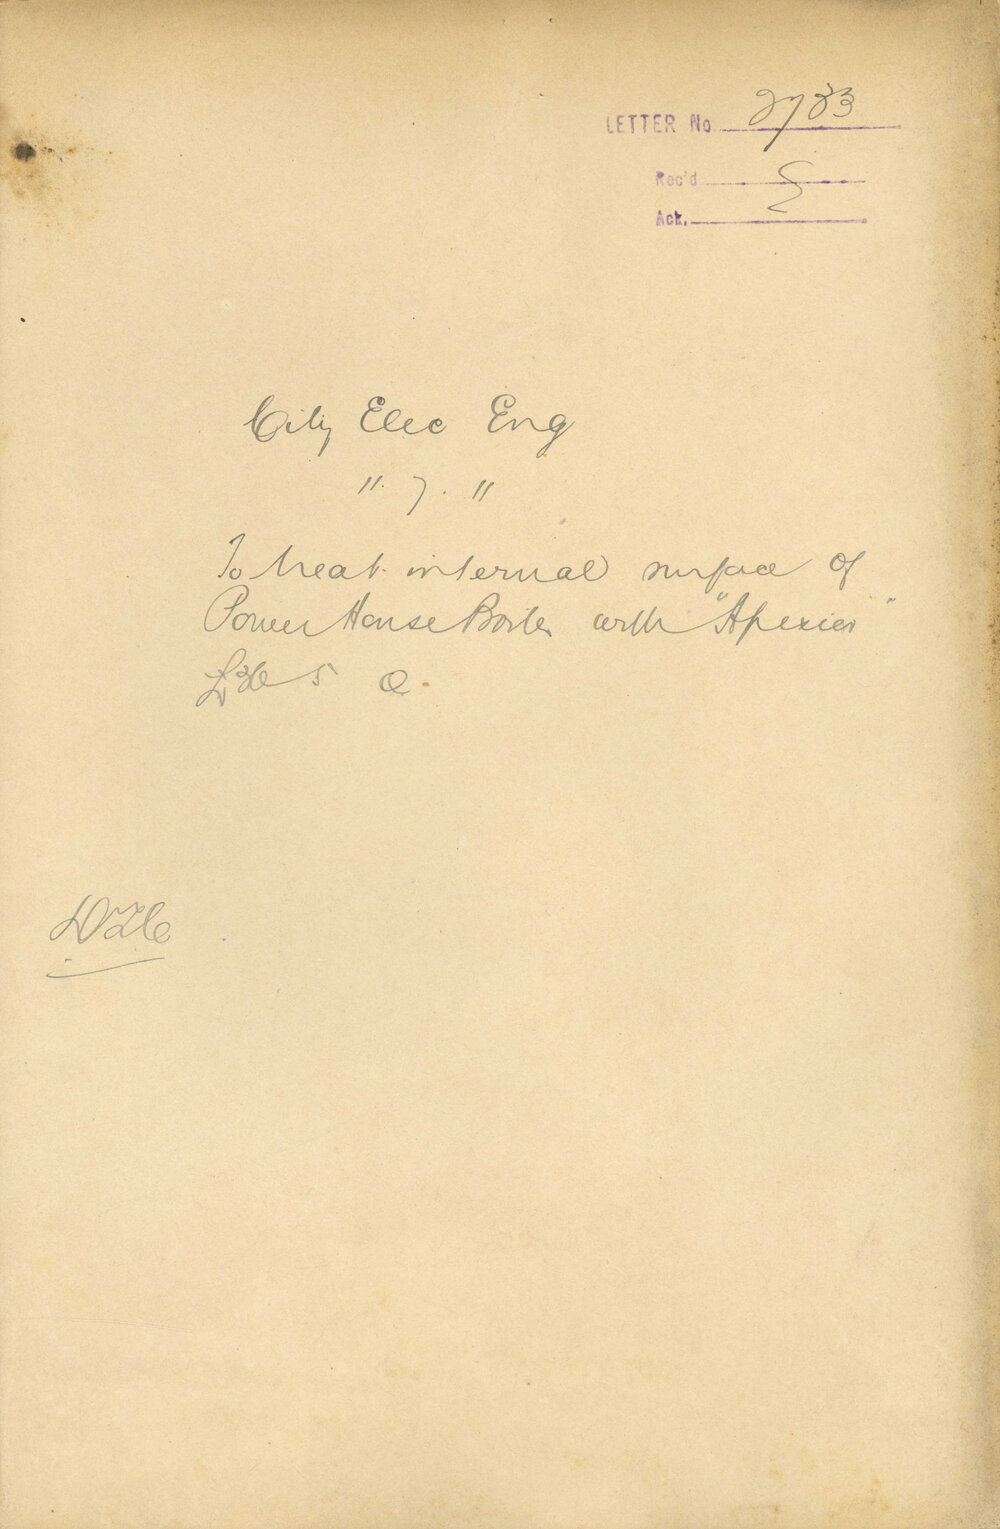 LETTER No 2733
Rec'd
Ack.
City Elec Eng
" 7. "
To treat internal surface of
Power House Boiler with "Apexior"
£36 5 0.